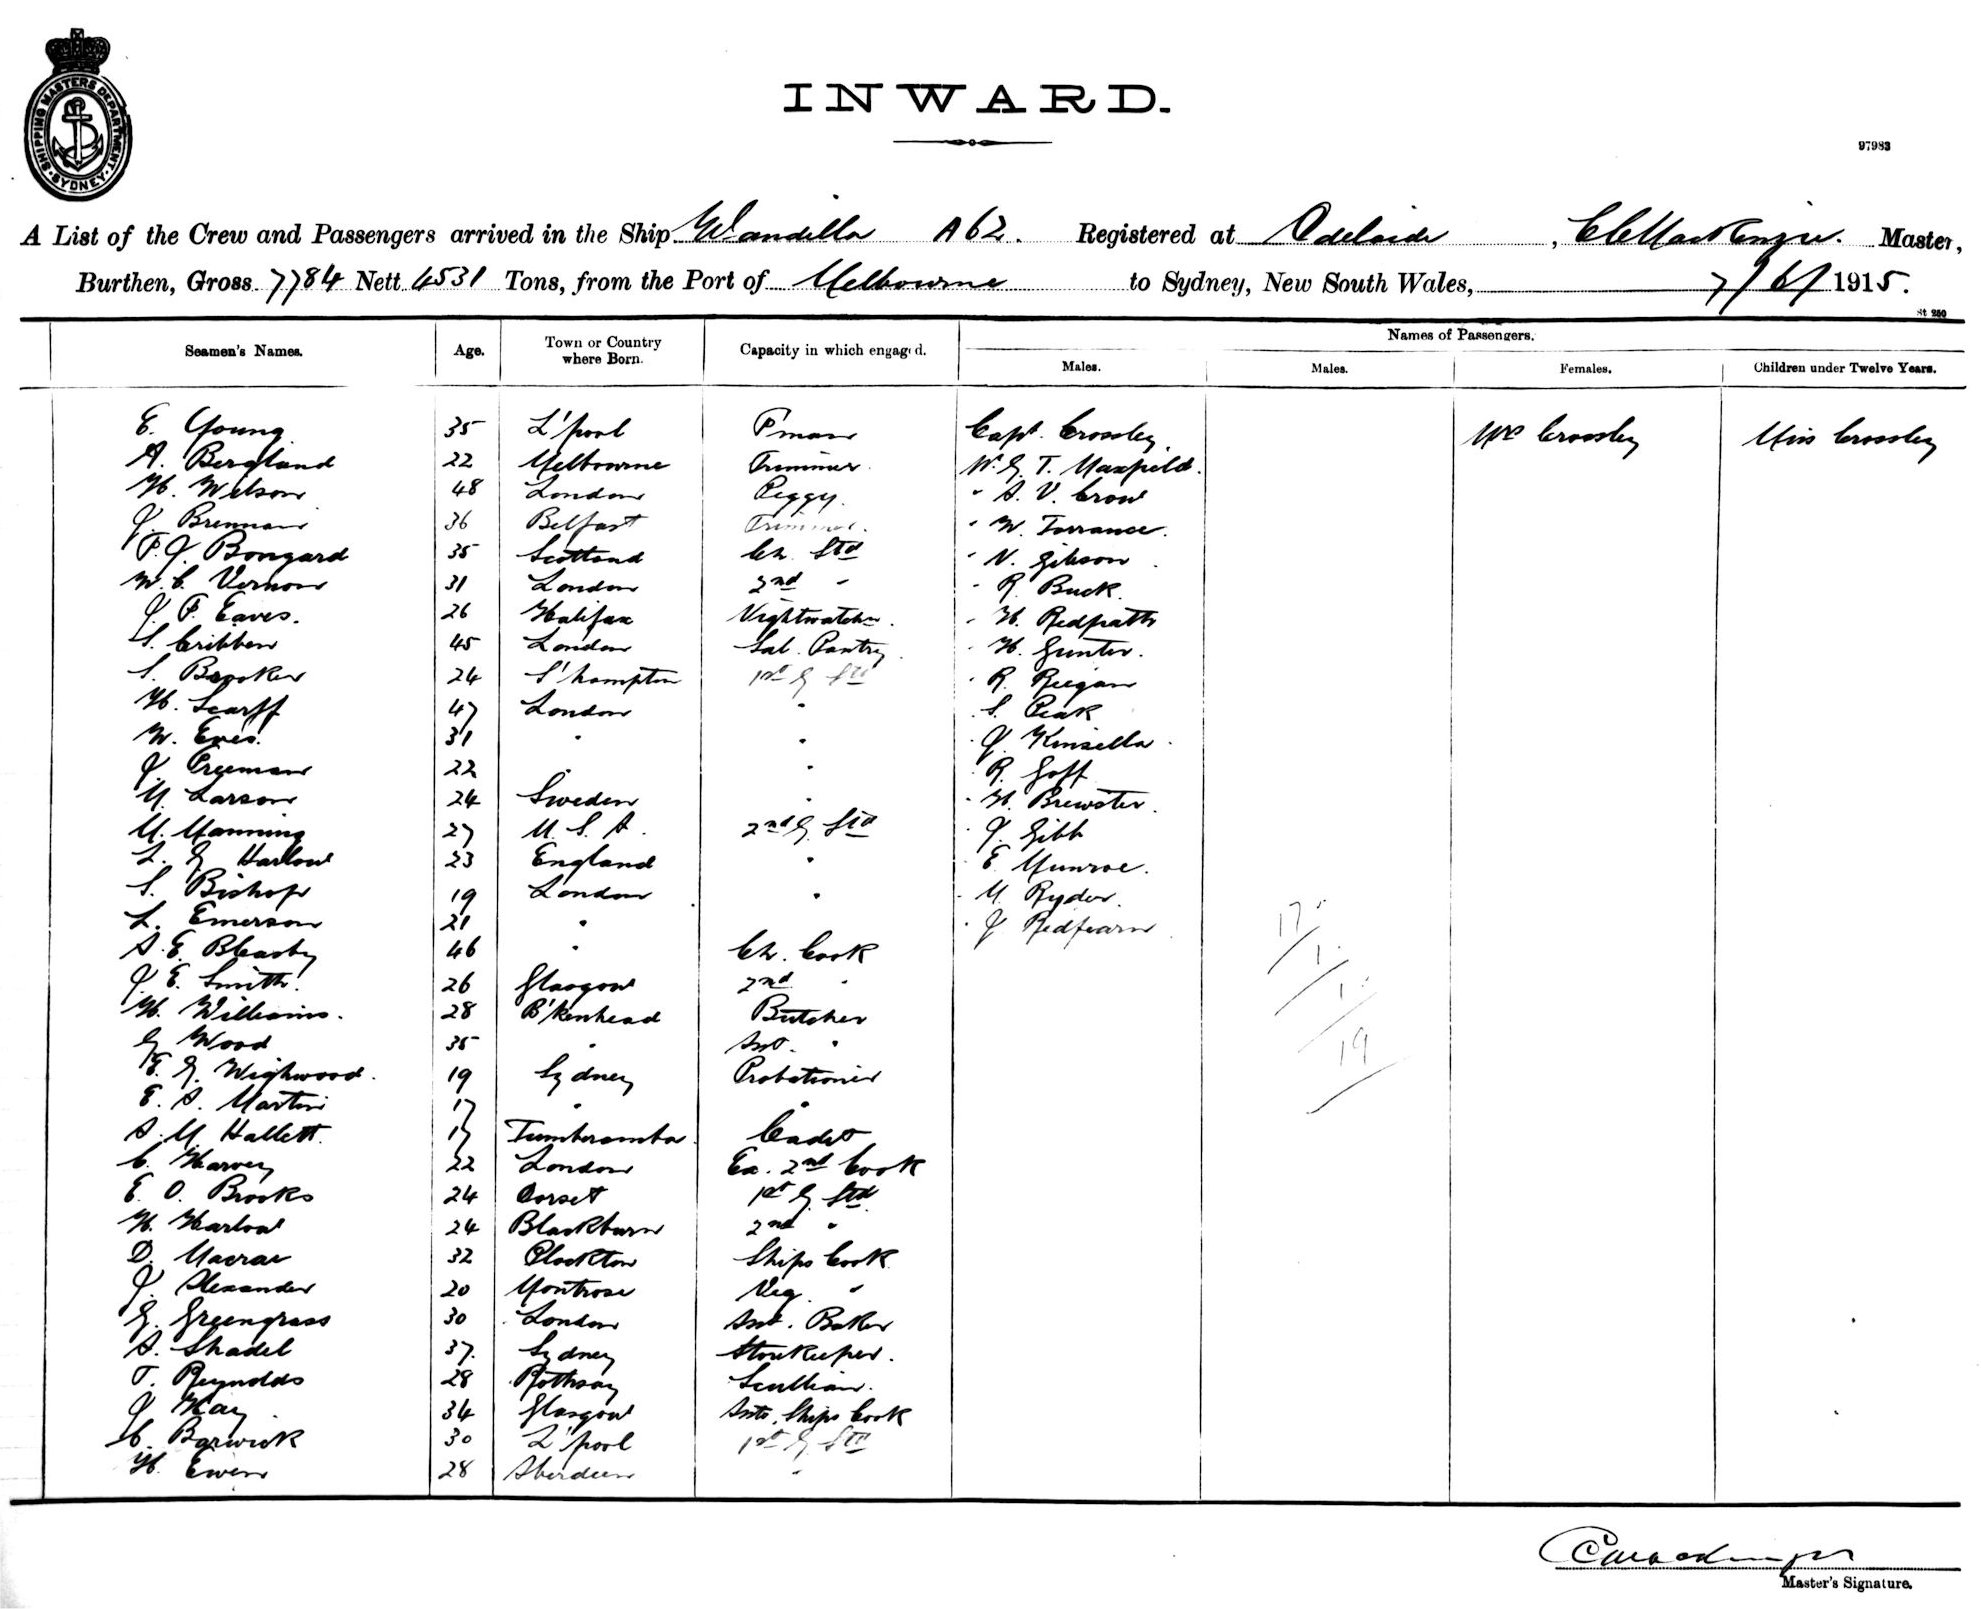 SHIPPING MASTERS DEPARTMENT
SYDNEY
INWARD.
97983
A List of the Crew and Passengers arrived in the Ship Wandilla A62. Registered at Adelaide, C C MacKenzie. Master,
Burthen, Gross 7784 Nett 4531 Tons, from the Port of Melbourne to Sydney, New South Wales, 7/6/1915.
St 250
Names of Passengers.
Seamen's Names. Age. Town or Country where Born. Capacity in which engaged. Males. Males. Females. Children under Twelve Years.
E. Young 35 L'pool F'man Capt. Crossley Mrs Crossley Miss Crossley
A. Bergland 22 Melbourne Trimmer W. G. T. Maxfield.
H. Wilson 48 London Peggy. " A. V. Crow
J. Brennan 36 Belfast Trimmer. " W. Torrance.
F. J. Bongard 35 Scotland Ch. Std " N. Gibson
W. C. Vernon 31 London 2nd " " R. Buck.
J. F. Eaves. 26 Halifax Nightwatchn. " H. Redpath
S. Cribben 45 London Sal. Pantry. " H. Gunter.
S. Brooker 24 S'hampton 1st G. Std " R. Reegan
H. Scarff 47 London " " S. Peak
W. Eves. 31 " " " J. Kinsella
J. Freeman 22 " " " R. Goff
M. Larson 24 Sweden " " H. Brewster.
M. Manning 27 U. S. A. 2nd G. Std " J. Gibb
L. G. Harlow 23 England " " E. Munroe.
S. Bishop 19 London " " M Ryder.
L. Emerson 21 " " J Redfearn 17
A. E. Bleasby 46 " Ch. Cook 1
J. E. Smith. 26 Glasgow 2nd " 1
H. Williams. 28 B'kenhead Butcher
G Wood 35 " Asst. " 19
E. G. Wighwood. 19 Sydney Probationer
E. A. Martin 17 " "
A. M. Hallett. 17 Tumberumba Cadet
C. Harvey 22 London Ex. 2nd Cook
E. O. Brooks 24 Dorset 1st G. Std
H. Harlow 24 Blackburn 2nd "
D. Macrae 32 Plockton Ships Cook
J. Alexander 20 Montrose Veg. "
G. Greengrass 30 London Asst. Baker
A. Shadel 37. Sydney Storekeeper.
T. Reynolds 28 Rothsay Scullion.
J Kay 34 Glasgow Asst. Ships Cook
C. Barwick 30 L'pool 1st G Std
H. Ewen 28 Aberdeen "
Master's Signature.